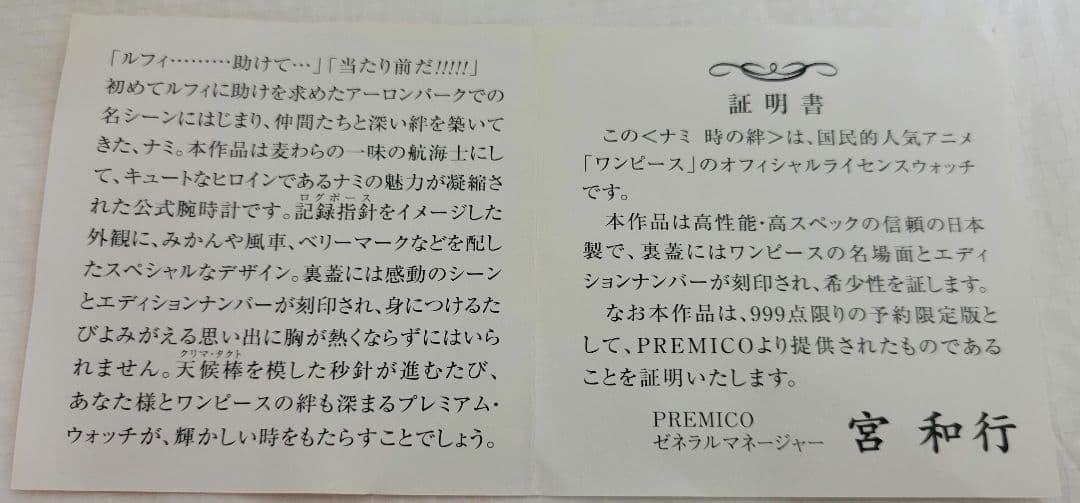 「ルフィ………助けて…」「当たり前だ!!!!!」
初めてルフィに助けを求めたアーロンパークでの
名シーンにはじまり、仲間たちと深い絆を築いて
きた、ナミ。本作品は麦わらの一味の航海士にし
て、キュートなヒロインであるナミの魅力が凝縮さ
れた公式腕時計です。記録指針をイメージした
ログポース
外観に、みかんや風車、ベリーマークなどを配し
たスペシャルなデザイン。裏蓋には感動のシーン
とエディションナンバーが刻印され、身につけるた
びよみがえる思い出に胸が熱くならずにはいら
れません。天候棒を模した秒針が進むたび、
クリマ・タクト
あなた様とワンピースの絆も深まるプレミアム・
ウォッチが、輝かしい時をもたらすことでしょう。
証明書
この＜ナミ 時の絆＞は、国民的人気アニメ
「ワンピース」のオフィシャルライセンスウォッチ
です。
本作品は高性能・高スペックの信頼の日本
製で、裏蓋にはワンピースの名場面とエディ
ションナンバーが刻印され、希少性を証します。
なお本作品は、999点限りの予約限定版と
して、PREMICOより提供されたものである
ことを証明いたします。
PREMICO
ゼネラルマネージャー 宮 和行